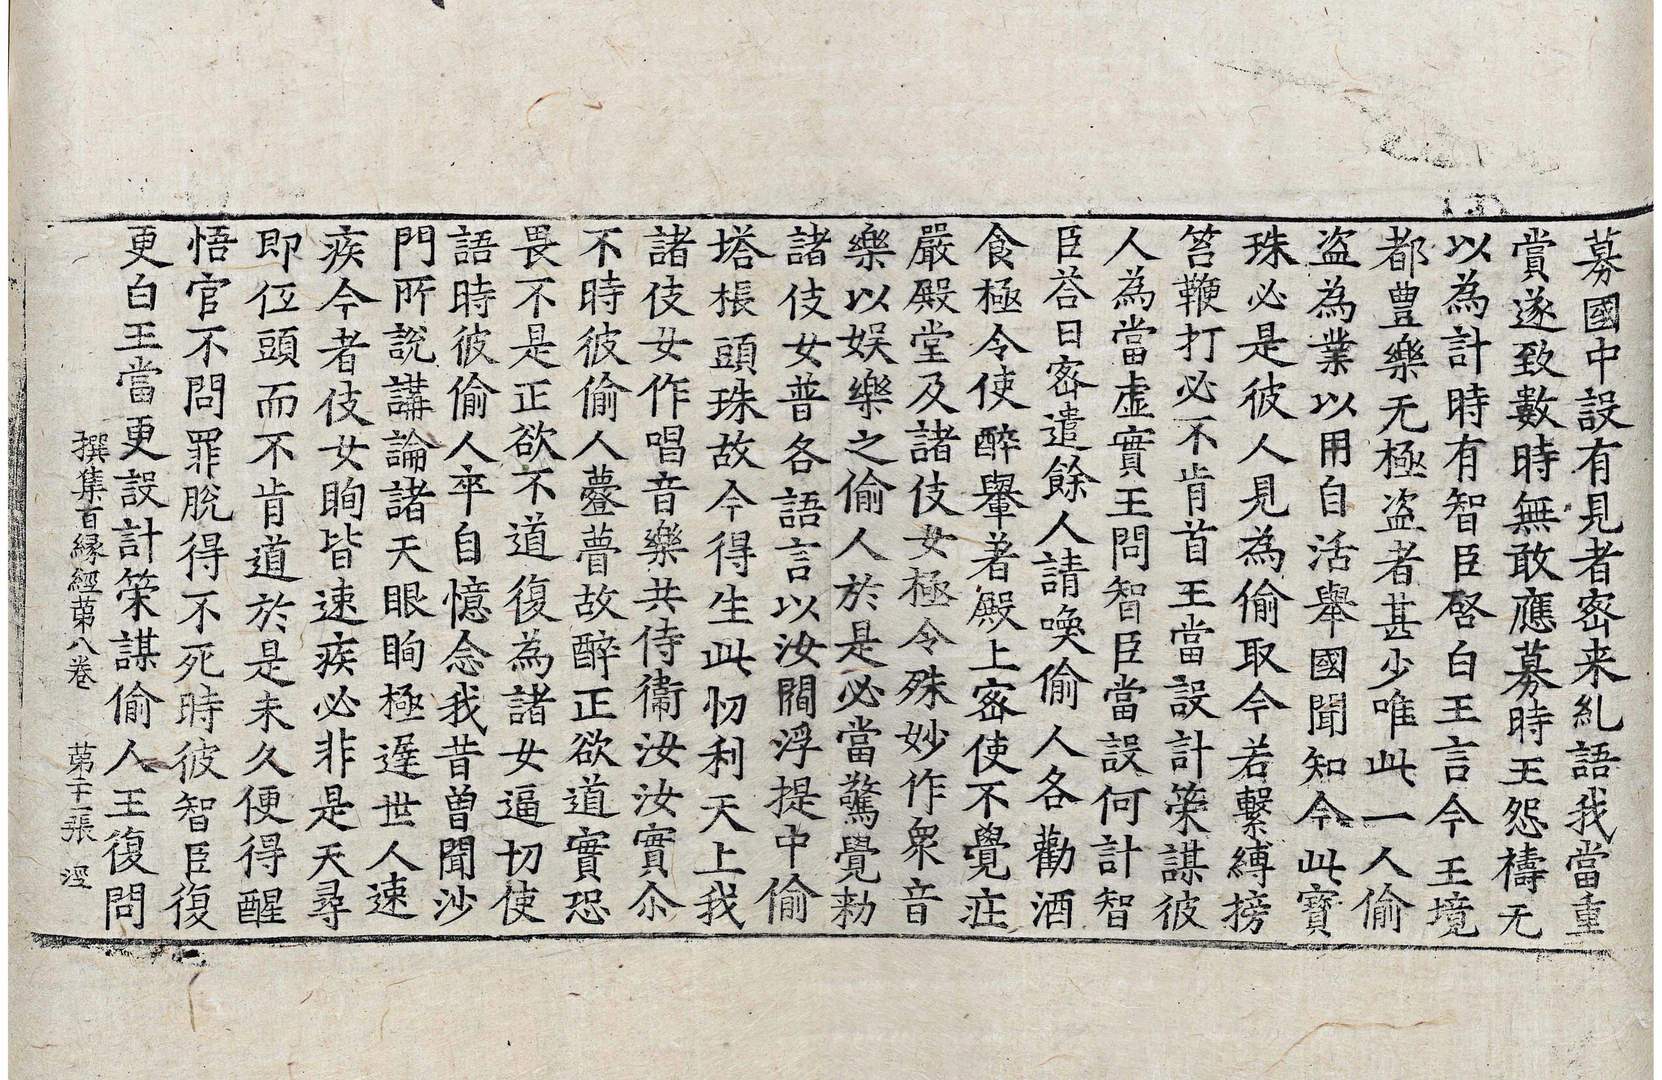 募國中設有見者密来糺語我當重
賞遂致數時無敢應募時王怨禱无
以為計時有智臣啓白王言今王境
都豊樂无極盗者甚少唯此一人偷
盗為業以用自活舉國聞知今此寶
珠必是彼人見為偷取今若繫縛搒
笞鞭打必不肯首王當設計筞謀彼
人為當虛實王問智臣當設何計智
臣荅曰密遣餘人請喚偷人各勸酒
食極令使醉轝著殿上密使不覺莊
嚴殿堂及諸伎女極令殊妙作衆音
樂以娛樂之偷人於是必當驚覺勑
諸伎女普各語言以汝閻浮提中偷
塔棖頭珠故今得生此忉利天上我
諸伎女作唱音樂共侍衞汝汝實尒
不時彼偷人虆瞢故醉正欲道實恐
畏不是正欲不道復為諸女逼切使
語時彼偷人卒自憶念我昔曽聞沙
門所說講論諸天眼眴極遅世人速
疾今者伎女眴皆速疾必非是天尋
即伍頭而不肯道於是未久便得醒
悟官不問罪脫得不死時彼智臣復
更白王當更設計筞謀偷人王復問
撰集百縁經苐八卷 苐十二張 涇